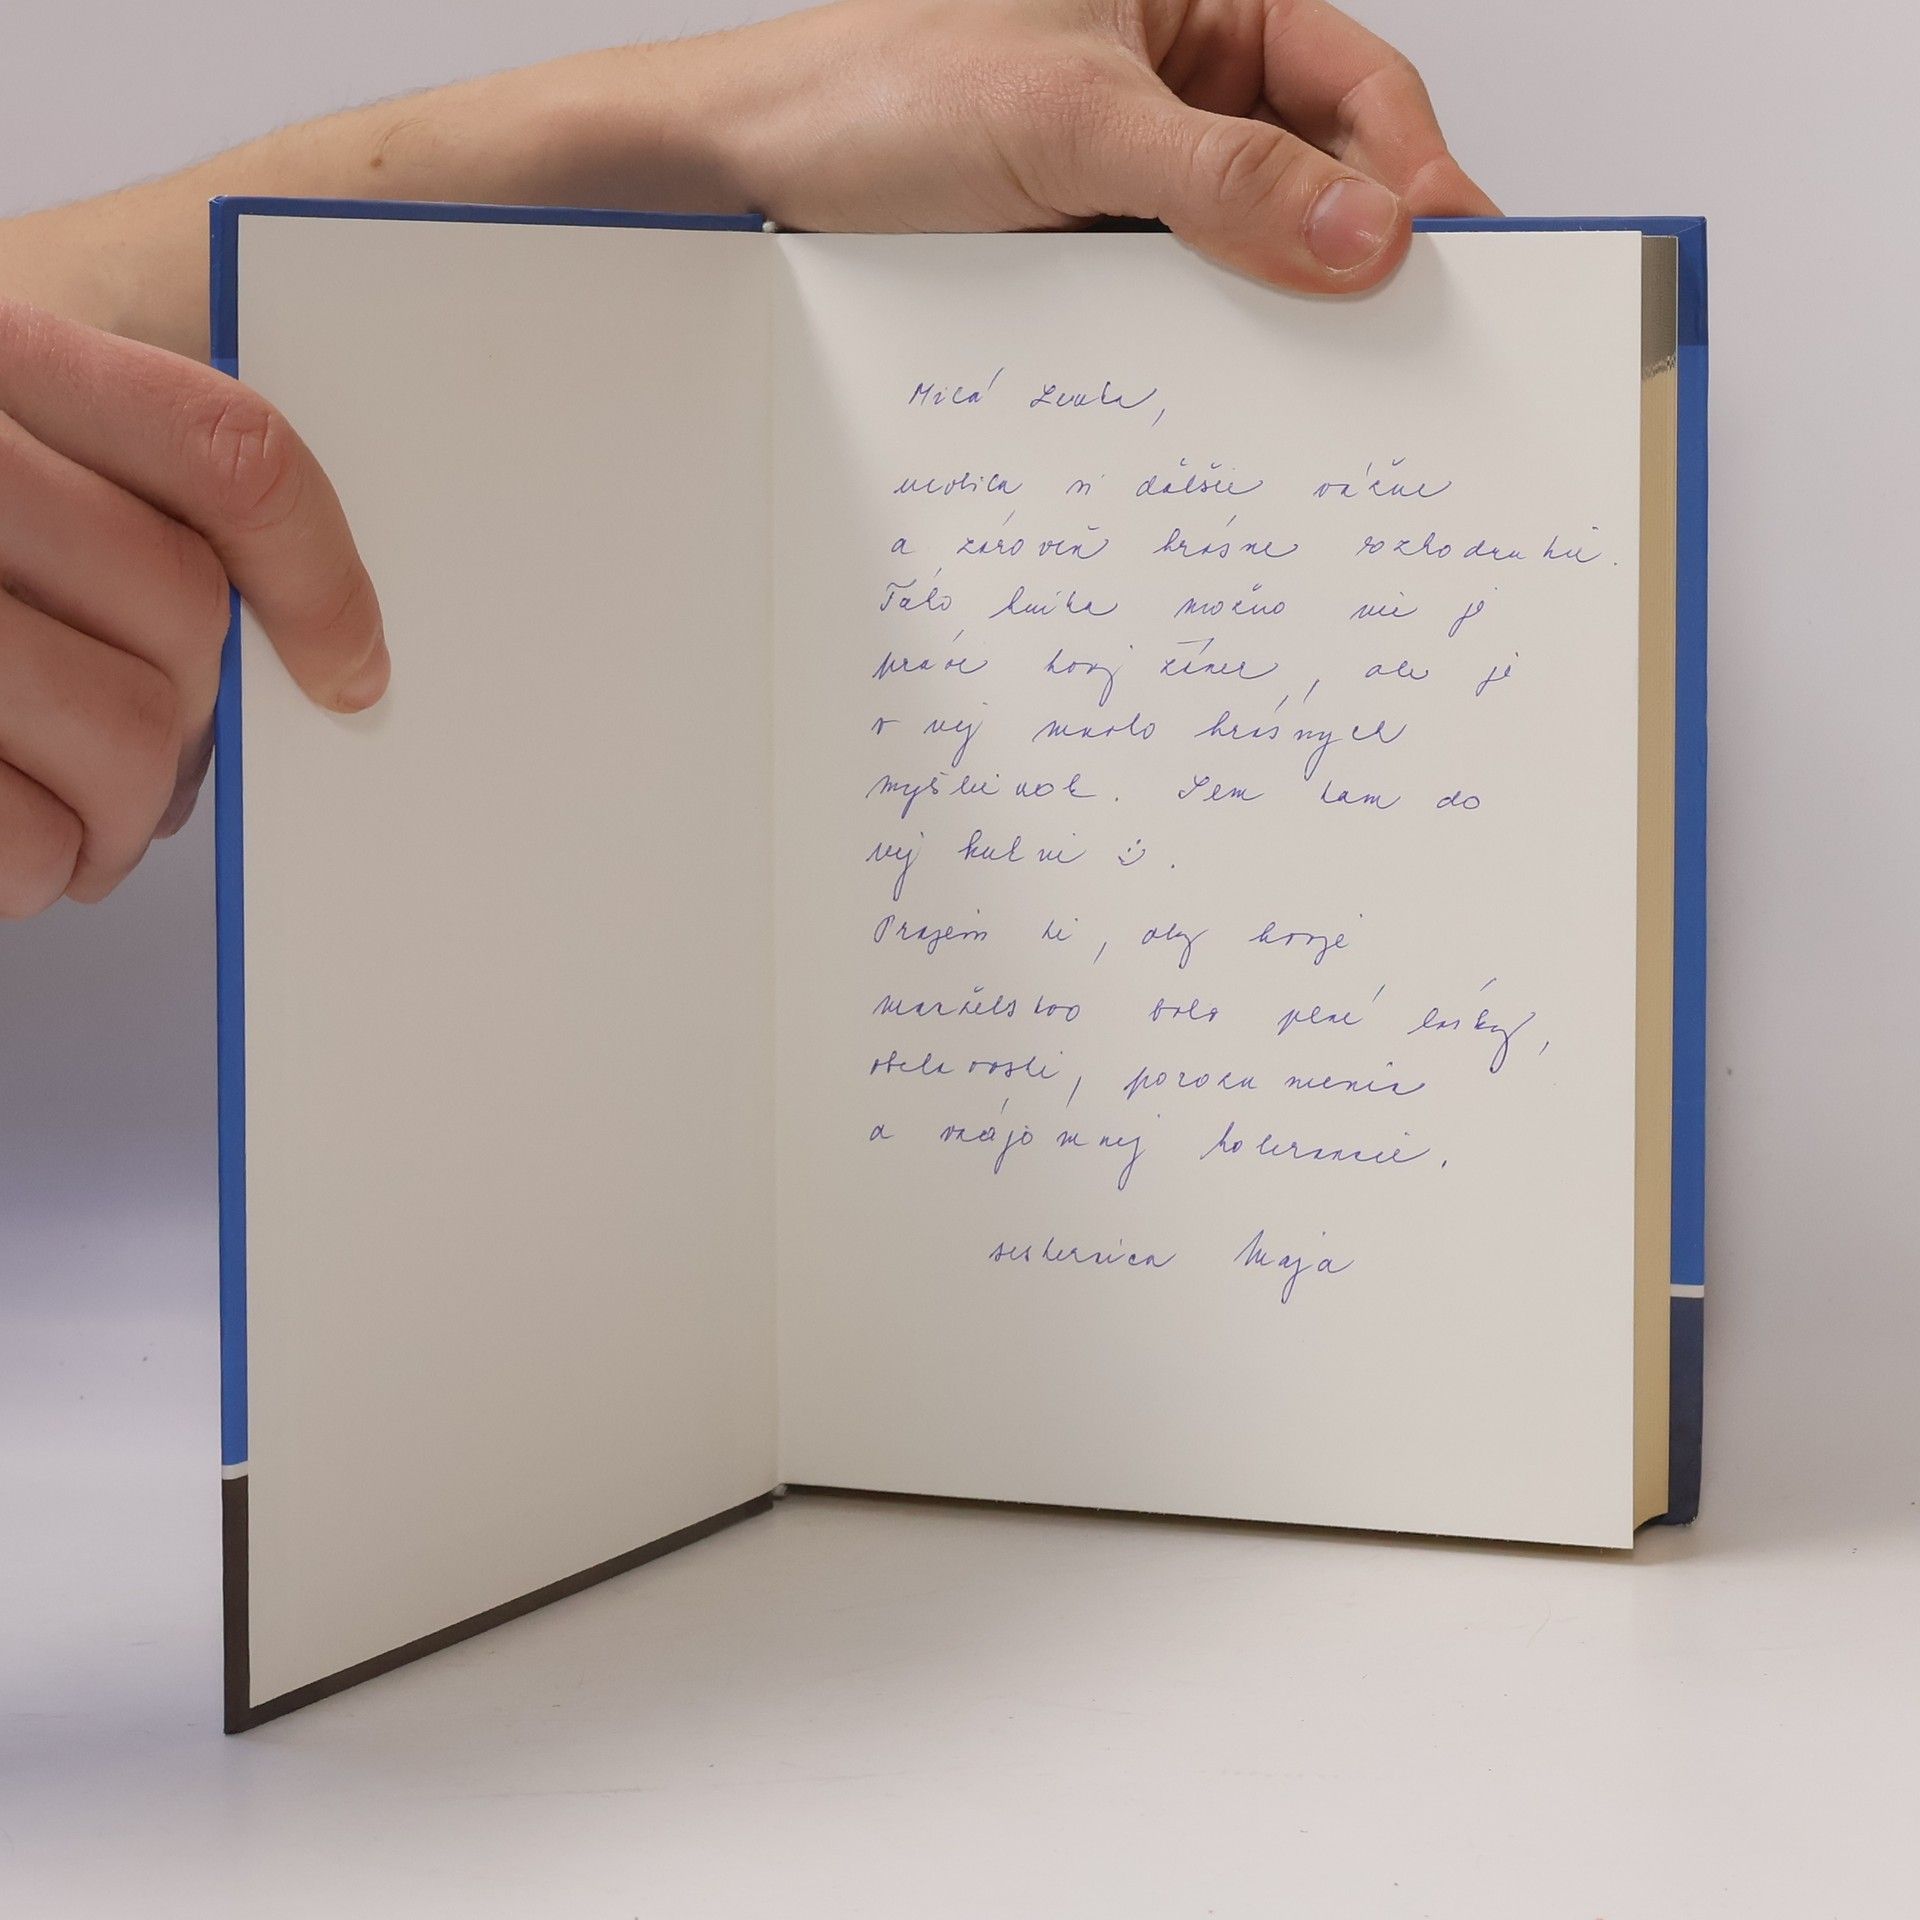 Milá Lenka,
urobila si ďalšie vážne
a zároveň krásne rozhodnutie.
Táto kniha možno nie je
práve tvoj žáner, ale je
v nej mnoho krásnych
myšlienok. Sem tam do
nej kukni :) .
Prajem ti, aby tvoje
manželstvo bolo plné lásky,
obetavosti, porozumenia
a vzájomnej tolerancie.
sesternica Maja